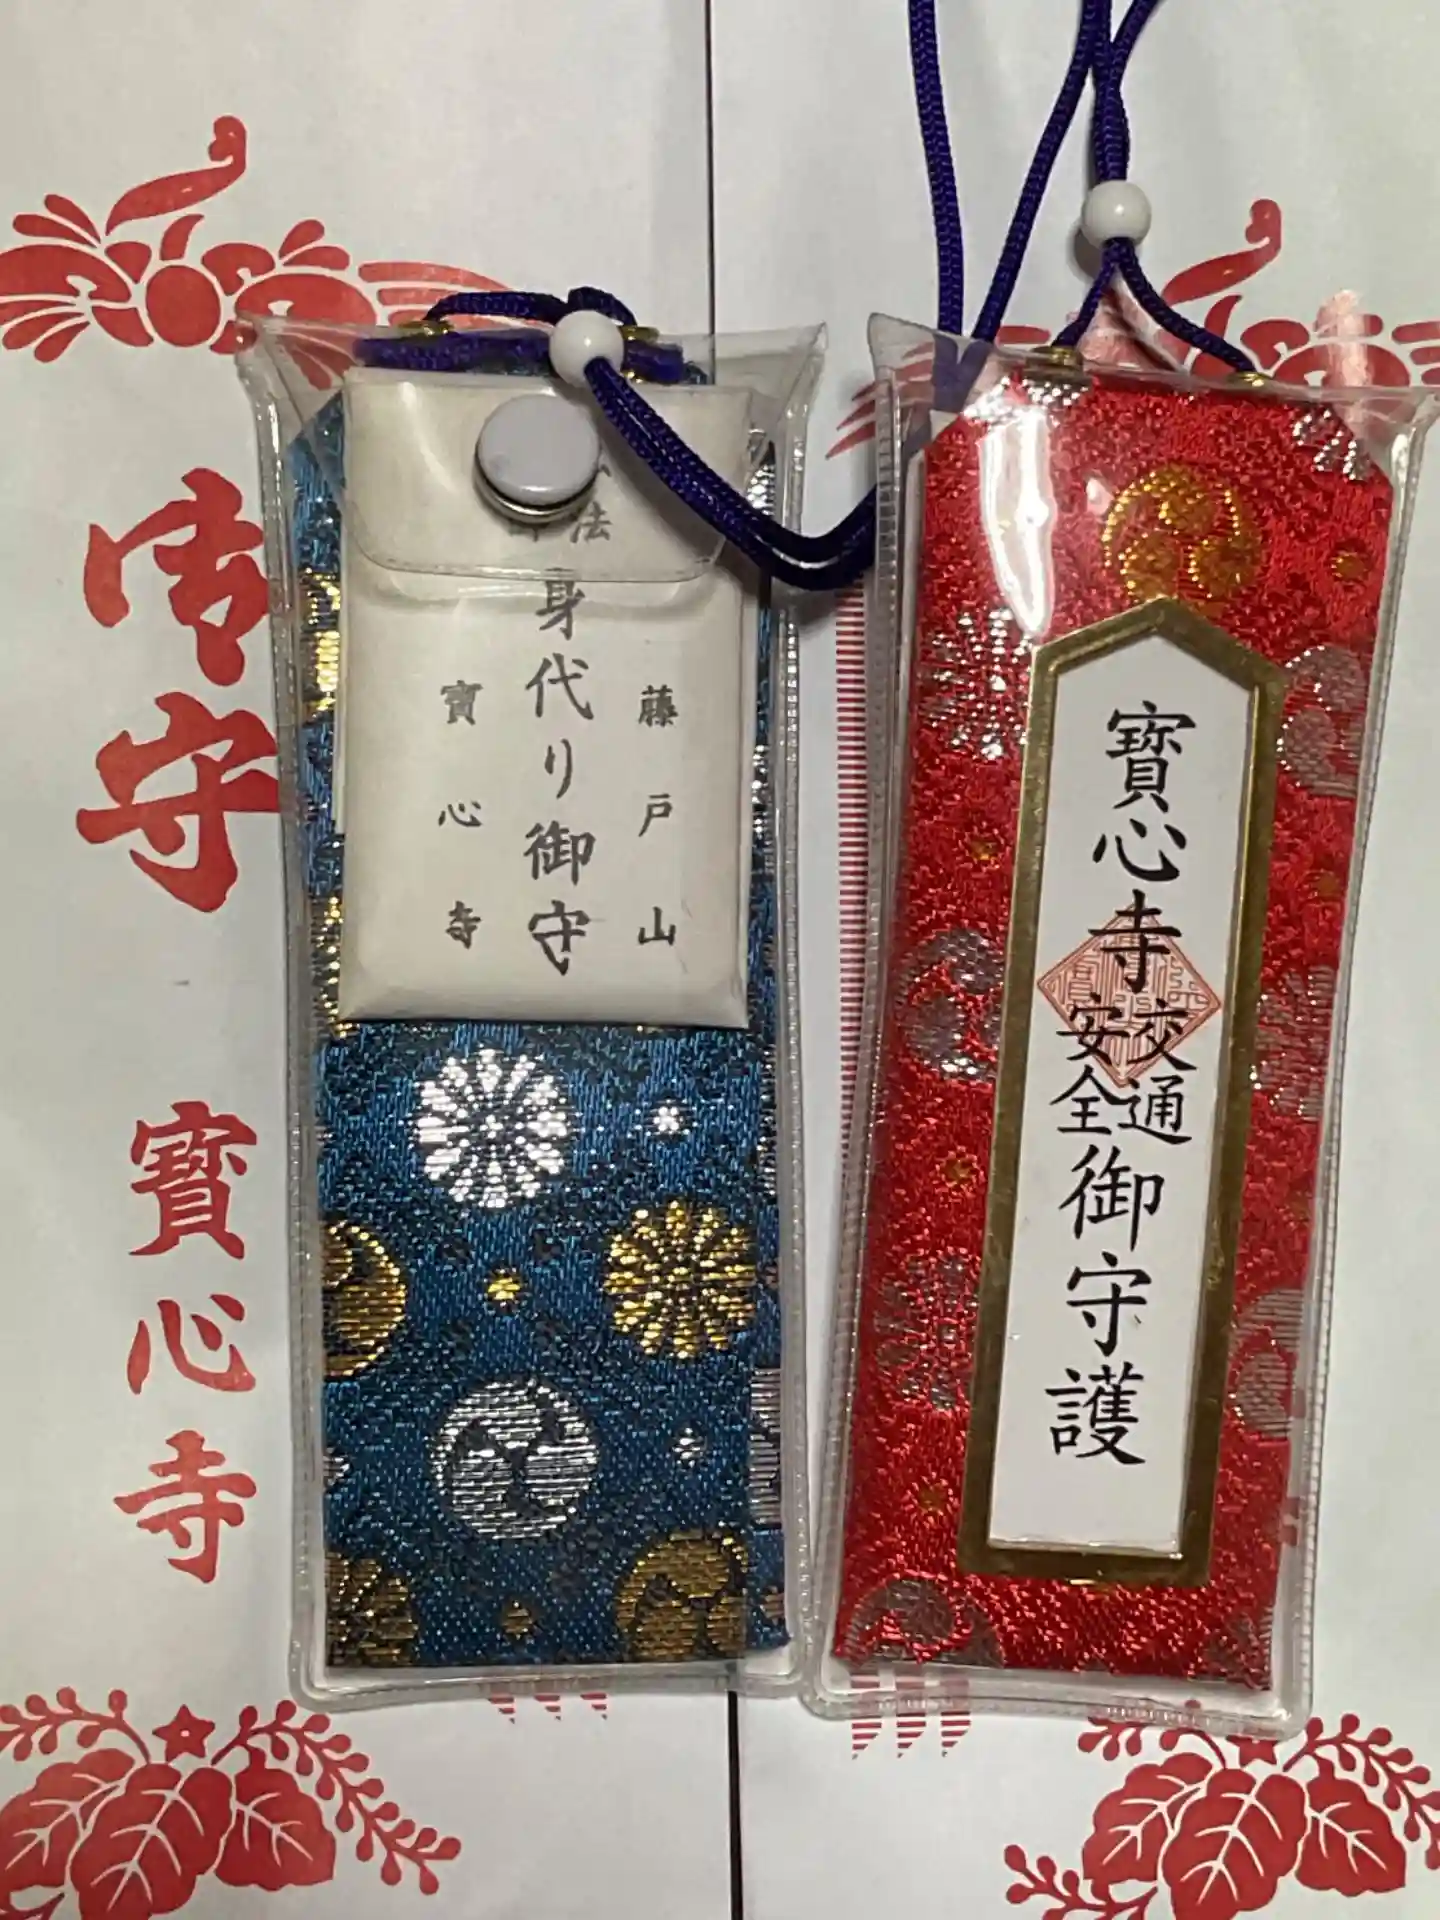 御守
寳心寺
法
身代り御守
藤戸山
寳心寺
寳心寺
交通
安全
御守護